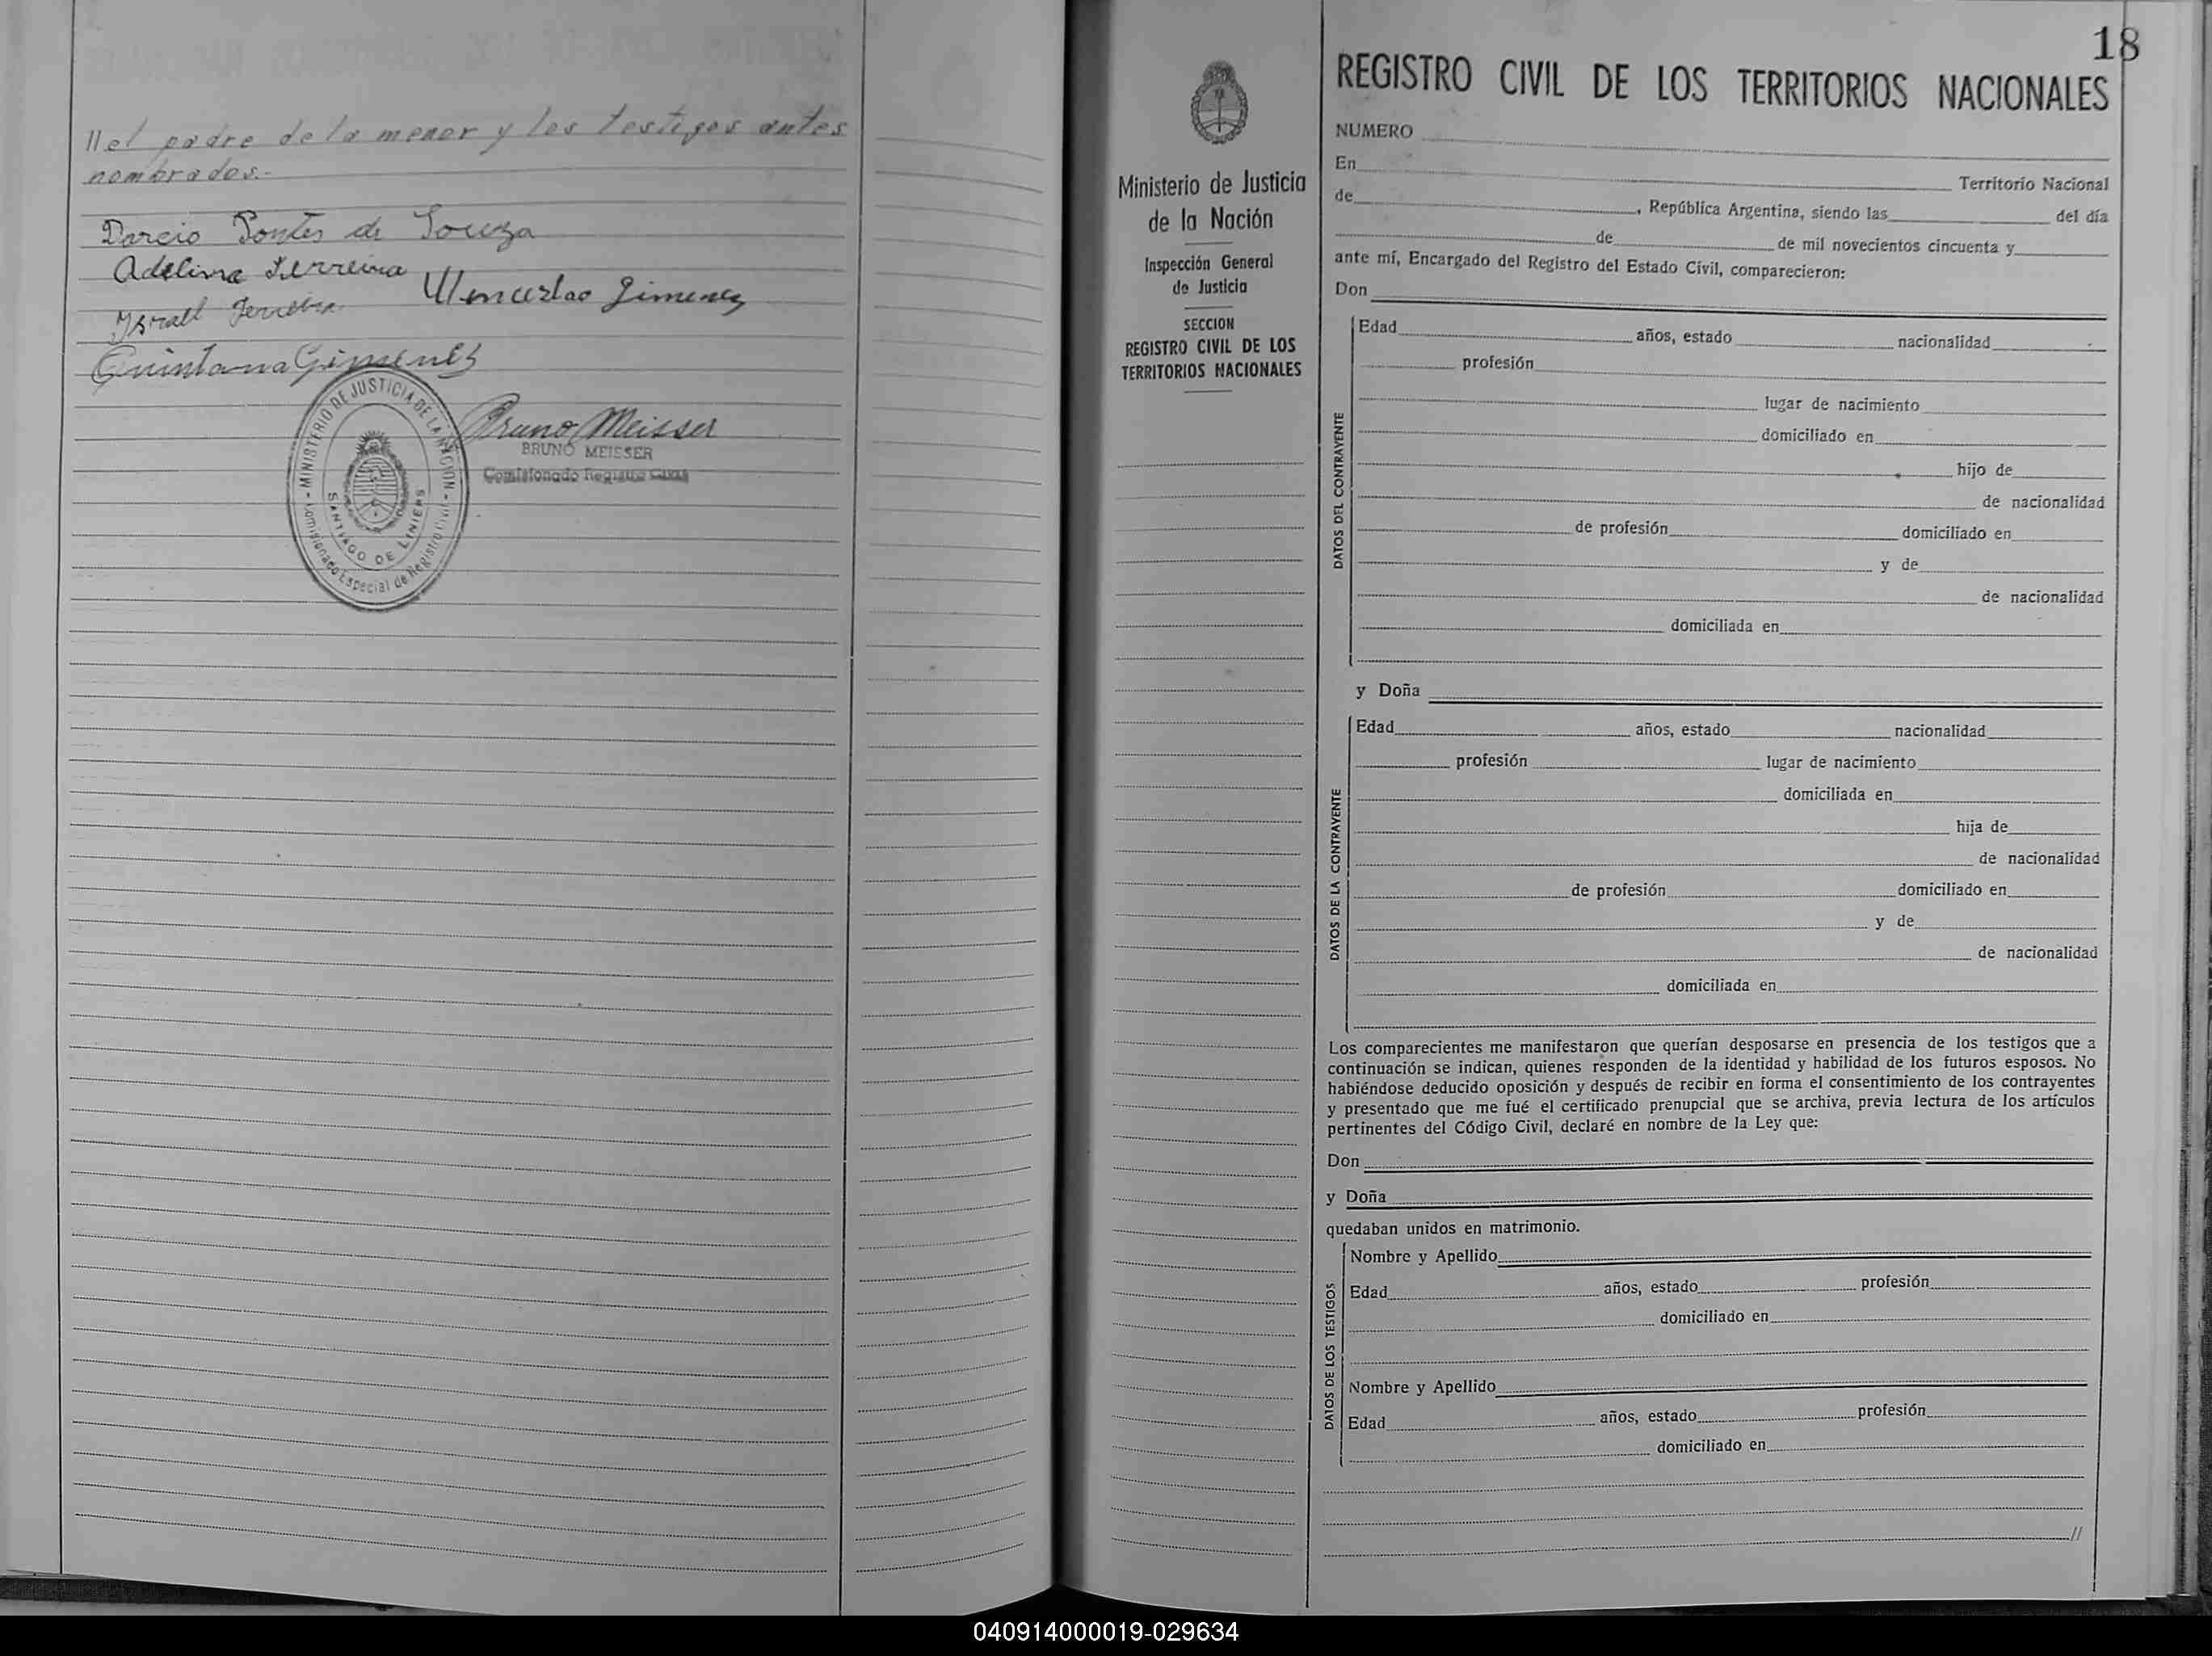 //el padre de la menor y los testigos antes
nombrados.-
Darcio Pontes de Souza
Adelina Ferreira
Wenceslao Gimenez
Israel Ferreira
Quintana Gimenes
MINISTERIO DE JUSTICIA DE LA NACION
SANTIAGO DE LINIERS
Comisionado Especial de Registro Civil
Bruno Meisser
BRUNO MEISSER
Comisionado Registro Civil
Ministerio de Justicia
de la Nación
Inspección General
de Justicia
SECCION
REGISTRO CIVIL DE LOS
TERRITORIOS NACIONALES
18
REGISTRO CIVIL DE LOS TERRITORIOS NACIONALES
NUMERO
En Territorio Nacional
de , República Argentina, siendo las del día
de de mil novecientos cincuenta y
ante mí, Encargado del Registro del Estado Civil, comparecieron:
Don
DATOS DEL CONTRAYENTE
Edad años, estado nacionalidad
profesión
lugar de nacimiento
domiciliado en
hijo de
de nacionalidad
de profesión domiciliado en
y de
de nacionalidad
domiciliada en
y Doña
DATOS DE LA CONTRAYENTE
Edad años, estado nacionalidad
profesión lugar de nacimiento
domiciliada en
hija de
de nacionalidad
de profesión domiciliado en
y de
de nacionalidad
domiciliada en
Los comparecientes me manifestaron que querían desposarse en presencia de los testigos que a
continuación se indican, quienes responden de la identidad y habilidad de los futuros esposos. No
habiéndose deducido oposición y después de recibir en forma el consentimiento de los contrayentes
y presentado que me fué el certificado prenupcial que se archiva, previa lectura de los artículos
pertinentes del Código Civil, declaré en nombre de la Ley que:
Don
y Doña
quedaban unidos en matrimonio.
DATOS DE LOS TESTIGOS
Nombre y Apellido
Edad años, estado profesión
domiciliado en
Nombre y Apellido
Edad años, estado profesión
domiciliado en
//
040914000019-029634